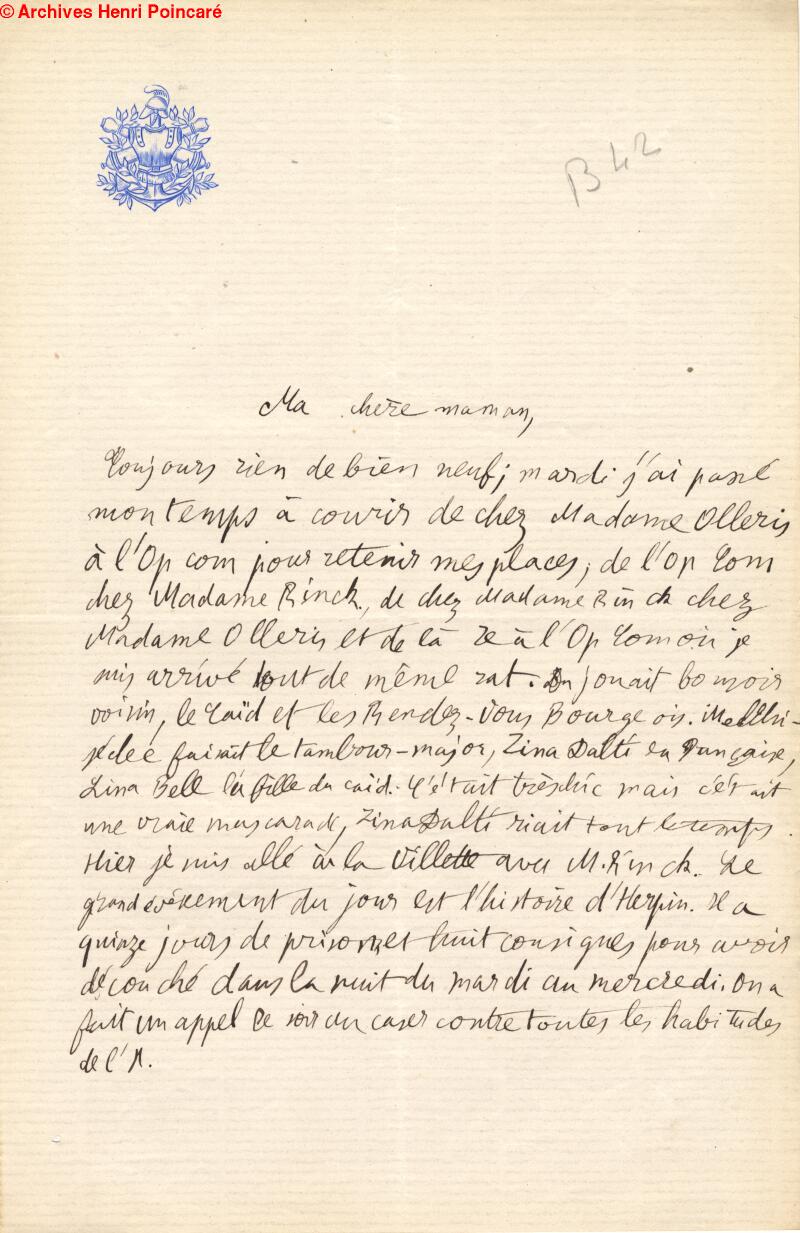 © Archives Henri Poincaré
B 42
Ma chère maman,
Toujours rien de bien neuf; mardi j'ai passé
mon temps à courir de chez Madame Olleris
à l'Op com pour retenir mes places, de l'Op Com
chez Madame Rinck, de chez Madame Rinck chez
Madame Olleris et de là re à l'Op Com où je
suis arrivé tout de même rat. On jouait bonsoir
voisin, le Caïd et les Rendez-Vous Bourgeois. Melchi-
sédec faisait le tambour-major, Zina Dalti la
Lina Bell la fille du caïd. C'était très chic mais c'était
une vraie mascarade, Zina Dalti riait tout le temps.
Hier je suis allé à la Villette avec M. Rinck. Le
grand événement du jour est l'histoire d'Herpin. Il a
quinze jours de prison et huit consignes pour avoir
découché dans la nuit du mardi au mercredi. On a
fait un appel ce soir au caser contre toutes les habitudes
de l'X.